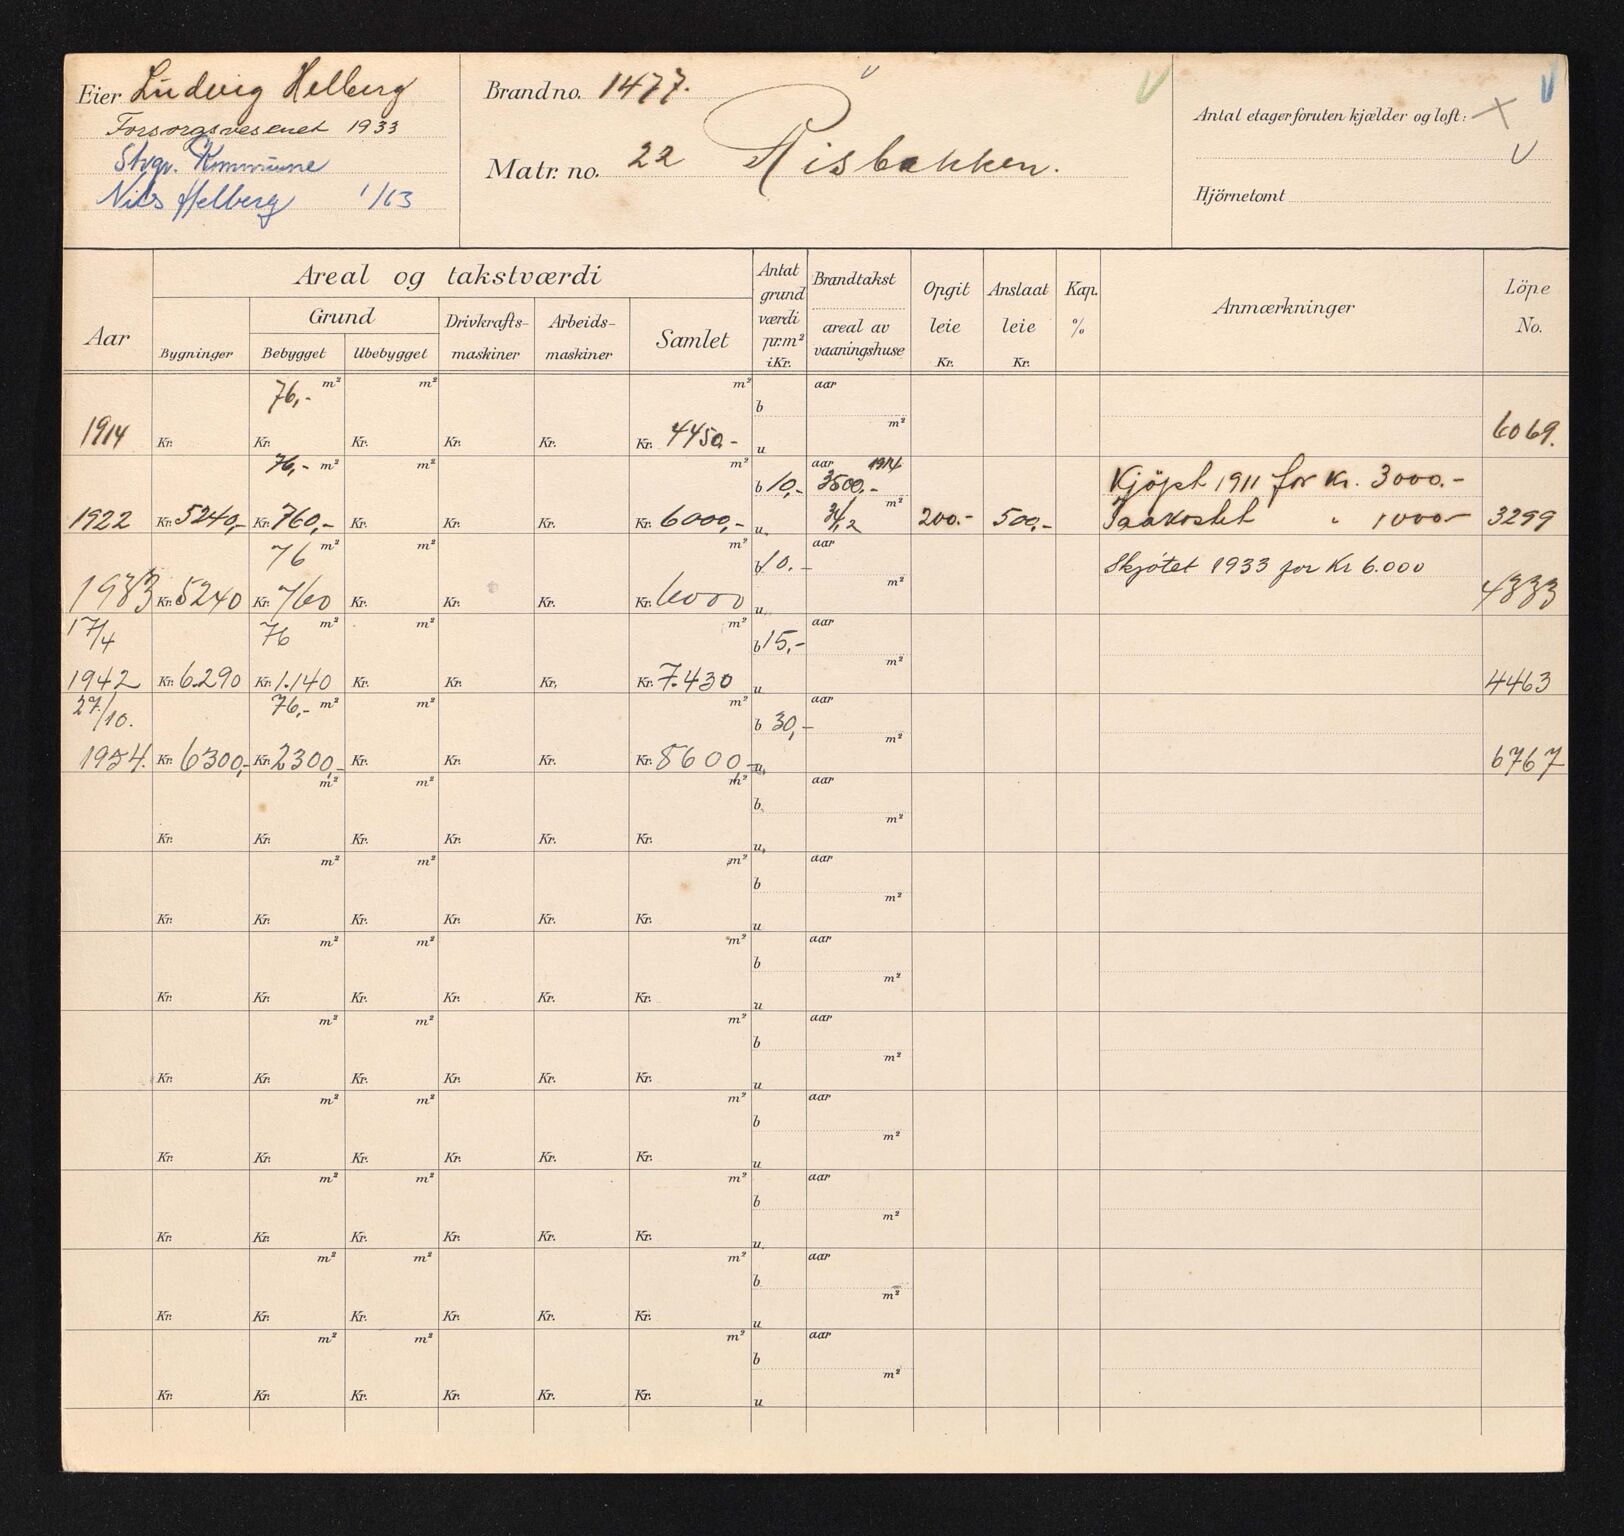 Eier Ludvig Helberg
Forsorgsvesenet 1933
Stvgr. Kommune
Nils Helberg 1/63
Brand no. 1477.
Matr. no. 22 Risbakken.
Antal etager foruten kjælder og loft: X
Hjörnetomt
Aar
Areal og takstværdi
Bygninger
Grund
Bebygget
Ubebygget
Drivkrafts-maskiner
Arbeids-maskiner
Samlet
Antat grund værdi pr.m² i Kr.
Brandtakst
areal av vaaningshuse
Opgit leie Kr.
Anslaat leie Kr.
Kap. %
Anmærkninger
Löpe No.
76,- m² m² m² aar
b
m²
1914 Kr. Kr. Kr. Kr. Kr. Kr. 4450.- u 6069.
76,- m² m² m² aar 1914
b 10,- 3500,- Kjöpt 1911 for Kr. 3000.-
m²
1922 Kr. 5240,- Kr. 760,- Kr. Kr. Kr. Kr. 6000,- u. 200.- 500,- Paakostet " 1000- 3299
76 m² m² m² aar
b 10.- Skjötet 1933 for Kr 6.000
m²
1933 Kr. 5240 Kr. 760 Kr. Kr. Kr. Kr. 6000 u. 4333
17/4 76 m² m² m² aar
b 15,-
m²
1942 Kr. 6.290 Kr. 1.140 Kr. Kr. Kr. Kr. 7.430 u 4463
27/10. 76,- m² m² m² aar
b 30,-
m²
1954. Kr. 6300,- Kr. 2300,- Kr. Kr. Kr. Kr. 8600- u. 6767
m² m² m² aar
b.
m²
Kr. Kr. Kr. Kr. Kr. Kr. u.
m² m² m² aar
b
m²
Kr. Kr. Kr. Kr. Kr. Kr. u
m² m² m² aar
b
m²
Kr. Kr. Kr. Kr. Kr. Kr. u
m² m² m² aar
b
m²
Kr. Kr. Kr. Kr. Kr. Kr. u
m² m² m² aar
b
m²
Kr. Kr. Kr. Kr. Kr. Kr. u
m² m² m² aar
b
m²
Kr. Kr. Kr. Kr. Kr. Kr. u.
m² m² m² aar
b
m²
Kr. Kr. Kr. Kr. Kr. Kr. u
m² m² m² aar
b
m²
Kr. Kr. Kr. Kr. Kr. Kr. u